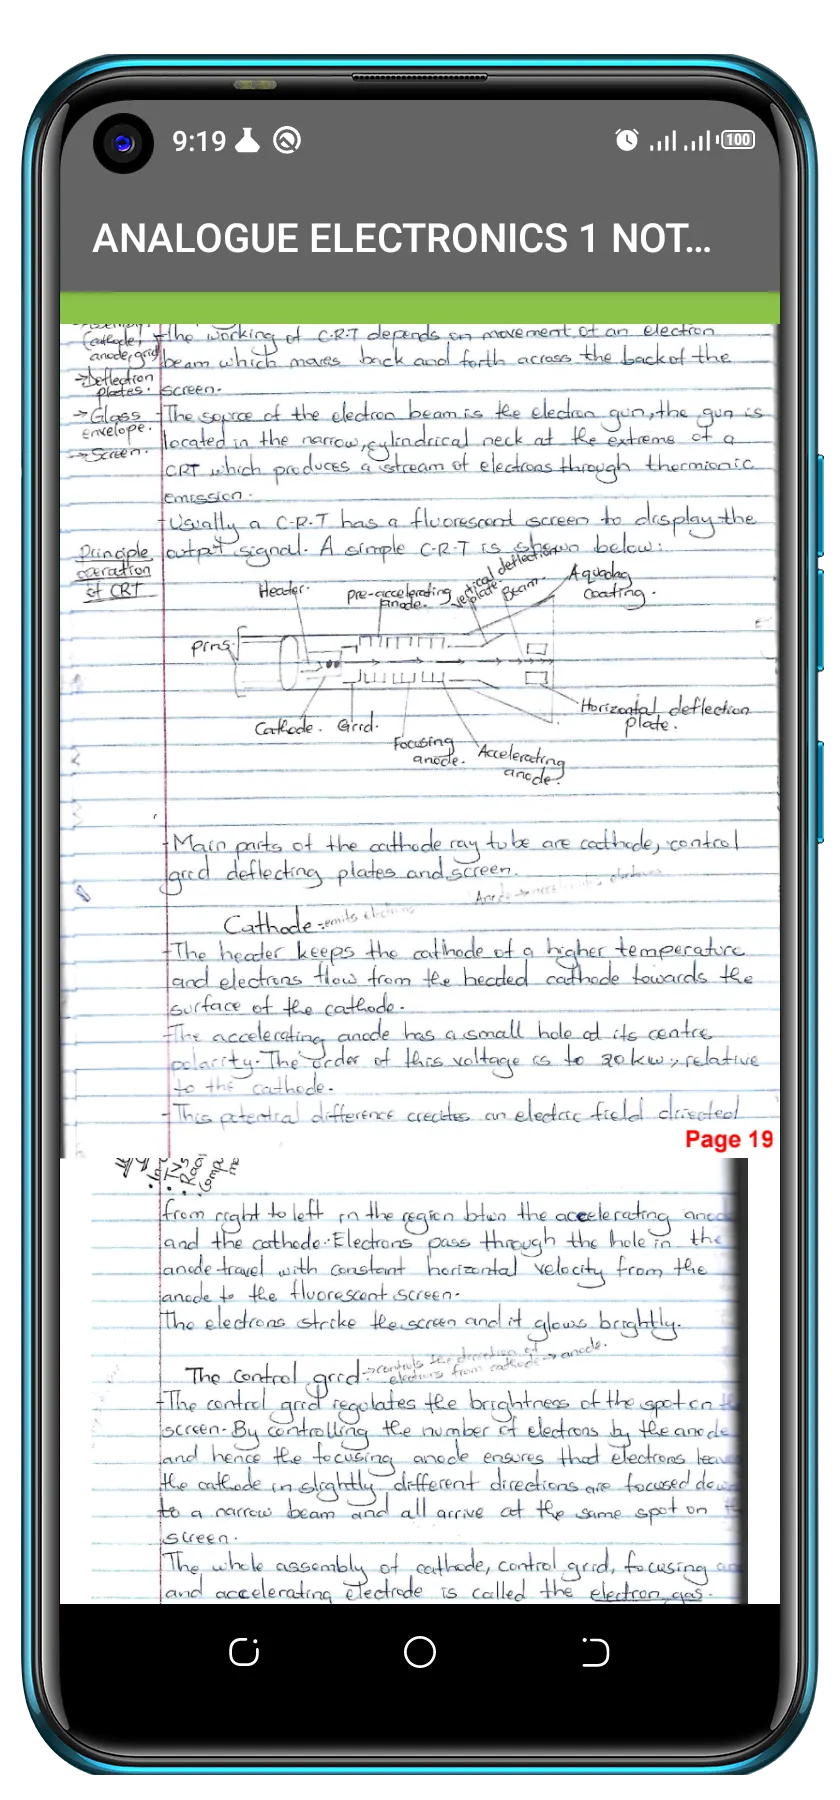 9:19
100
ANALOGUE ELECTRONICS 1 NOT...
(cathode,
anode, grid
→ Deflection
plates.
→ Glass
envelope.
→ Screen.
- The working of C.R.T depends on movement of an electron
beam which moves back and forth across the back of the
screen.
- The source of the electron beam is the electron gun, the gun is
located in the narrow, cylindrical neck at the extreme of a
CRT which produces a stream of electrons through thermionic
emission.
- Usually a C.R.T has a fluorescent screen to display the
output signal. A simple C.R.T is shown below:
Principle
operation
of CRT
Heater.
pre-accelerating
anode.
vertical deflection
plate.
Beam.
Aquadag
coating.
pins
Cathode.
Grid.
Focusing
anode.
Accelerating
anode.
Horizontal deflection
plate.
- Main parts of the cathode ray tube are cathode, control
grid deflecting plates and screen.
Anode →
Cathode :- emits electrons
- The heater keeps the cathode of a higher temperature
and electrons flow from the heated cathode towards the
surface of the cathode.
- The accelerating anode has a small hole at its centre
polarity. The order of this voltage is to 20kw, relative
to the cathode.
- This potential difference creates an electric field directed
Page 19
TVs
from right to left in the region btwn the accelerating
and the cathode. Electrons pass through the hole in the
anode travel with constant horizontal velocity from the
anode to the fluorescent screen.
The electrons strike the screen and it glows brightly.
The control grid :→ controls the direction of
electrons from cathode → anode.
- The control grid regulates the brightness of the spot on
screen. By controlling the number of electrons by the anode
and hence the focusing anode ensures that electrons
the cathode in slightly different directions are focused
to a narrow beam and all arrive at the same spot on
screen.
The whole assembly of cathode, control grid, focusing
and accelerating electrode is called the electron gas.